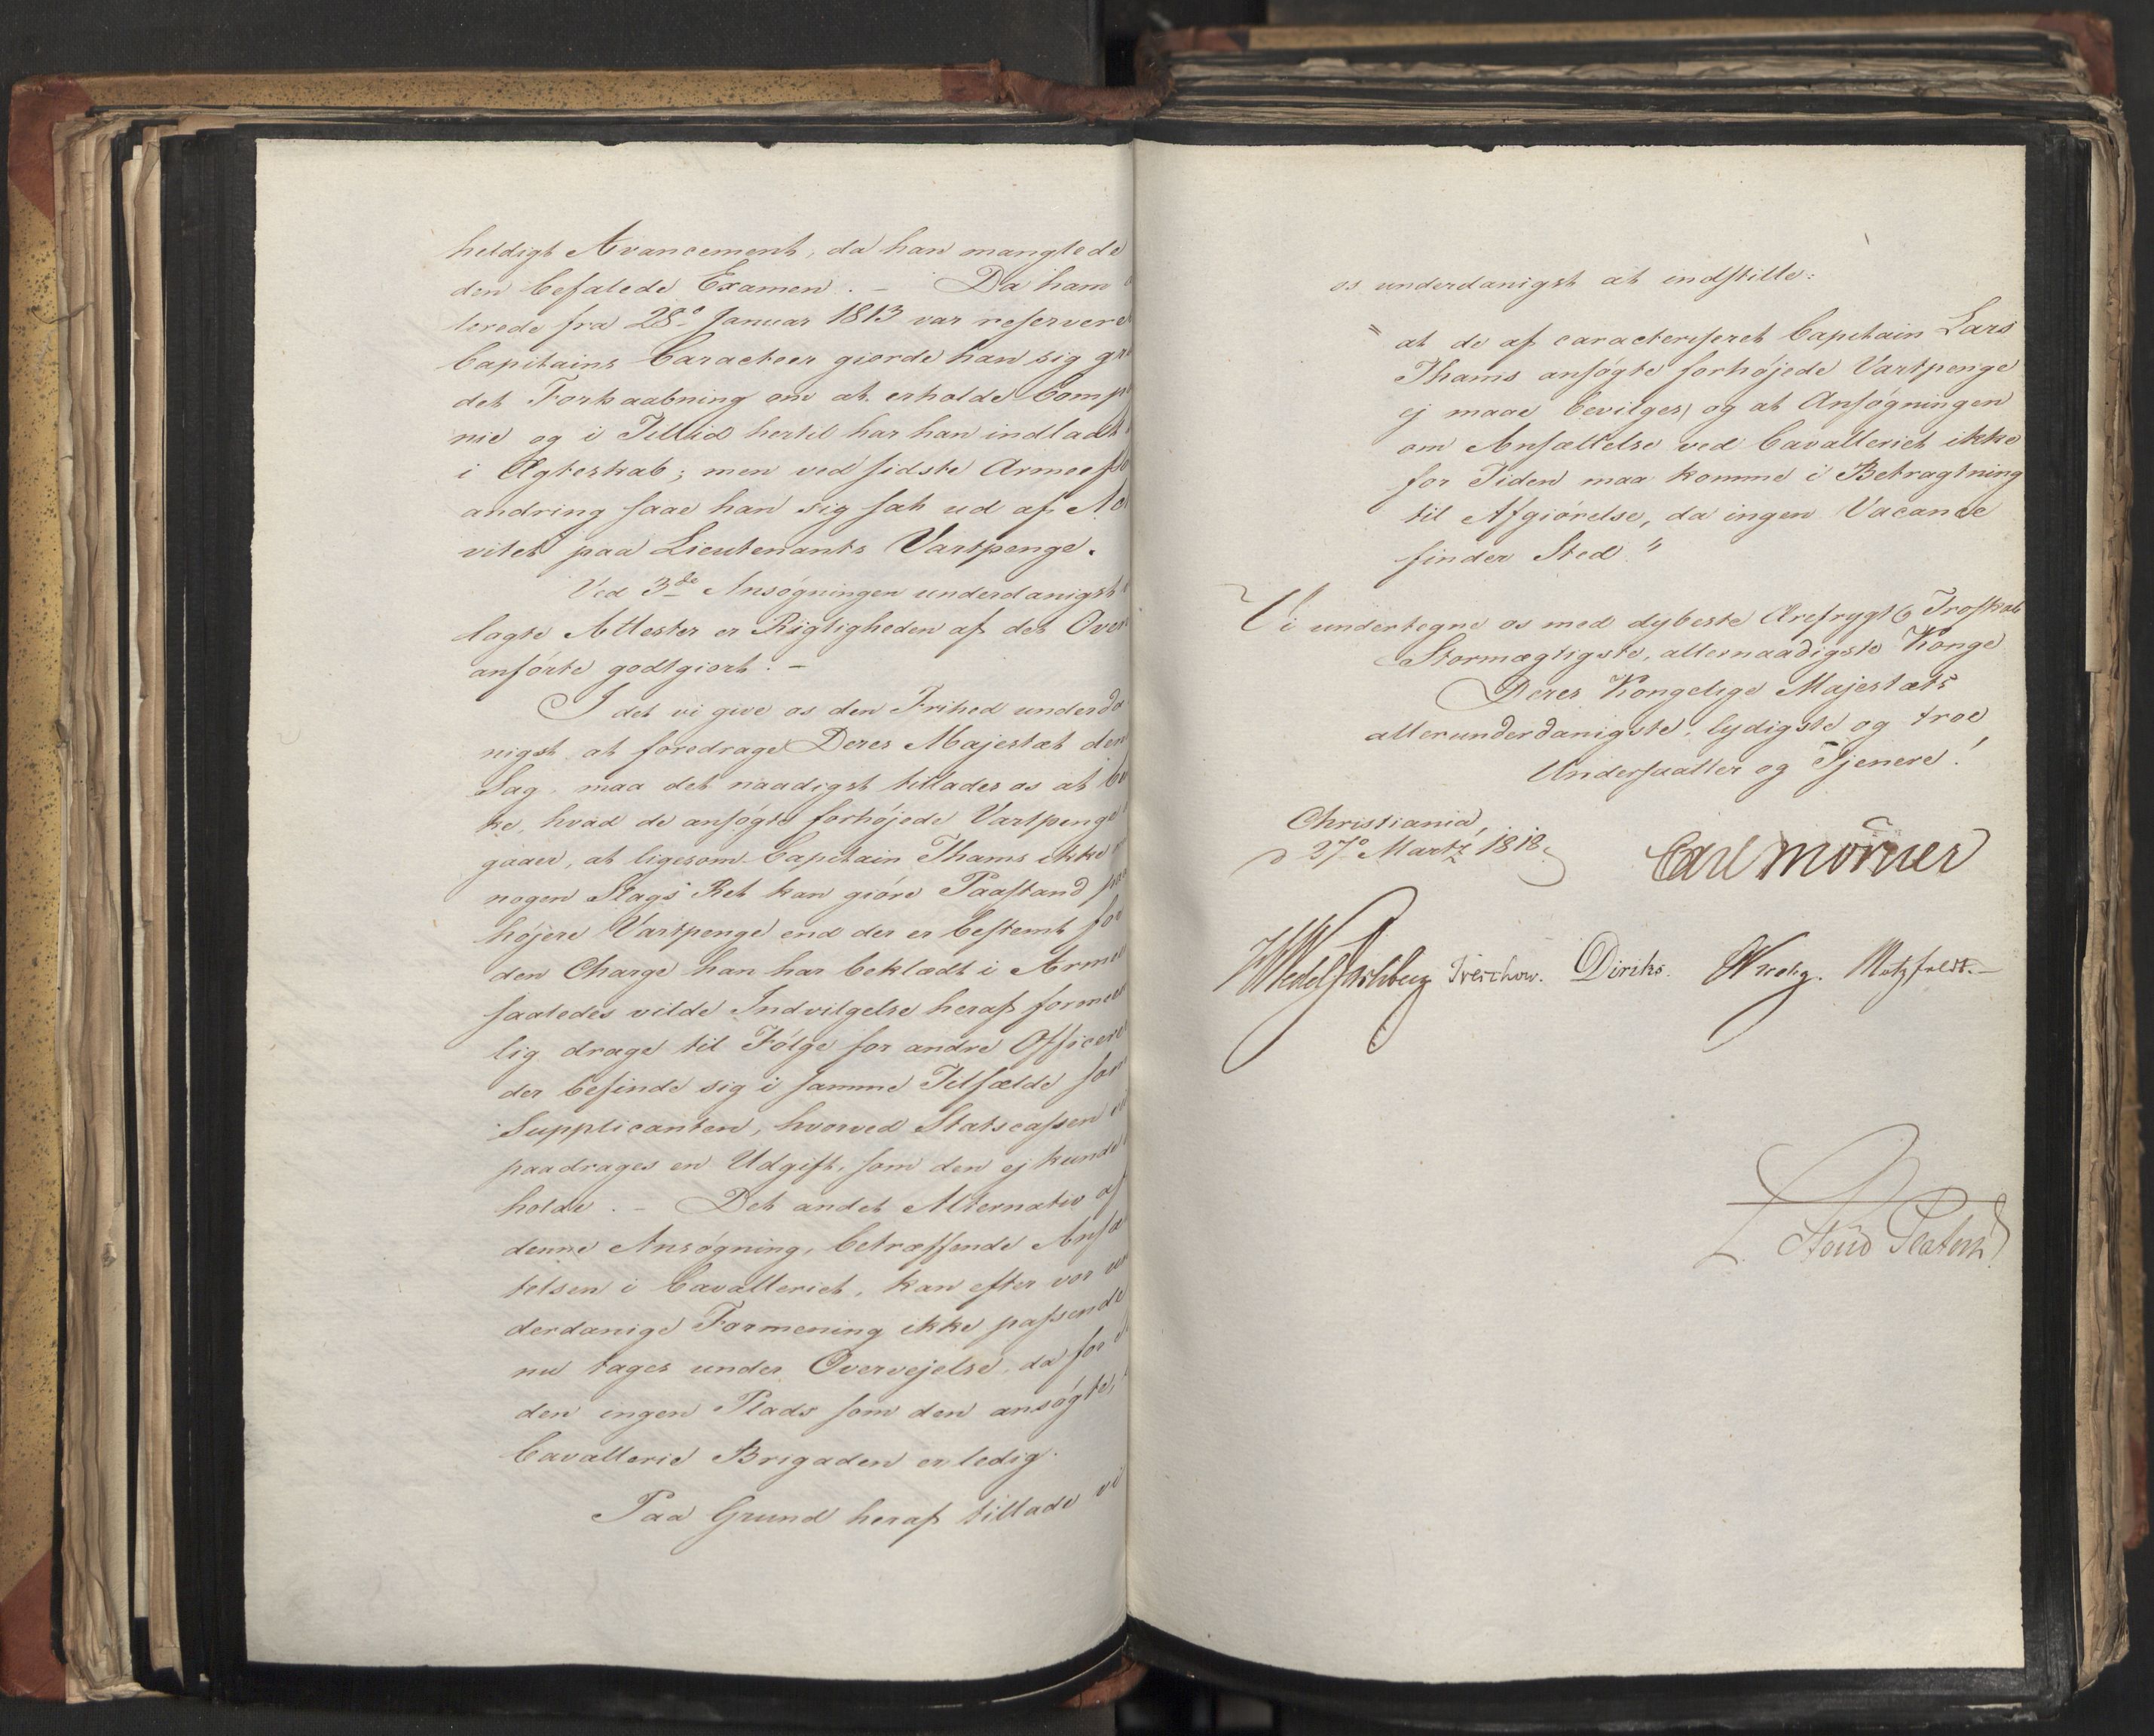 heldigt Avancement, da han manglede
den befalede Examen. – Da ham
lerede fra 28de Januar 1813 var reserveret
Capitains Caracteer giorde han sig
det Forhaabning om at erholde Comp
nie og i Tillid hertil har han indladt
i Ægteskab; men ved sidste Armeefor
andring saae han sig sat ud af Ac
vitet paa Lieutenants Vartpenge.
Ved 3de Ansøgningen underdanigst
lagte Attester er Rigtigheden af det Oven
anførte godtgiort. –
I det vi give os den Frihed underda
nigst at foredrage Deres Majestæt den
Sag, maa det naadigst tillades os at be
ke, hvad de ansøgte forhøjede Vartpenge
gaaer, at ligesom Capitain Thams ikke
nogen Slags Ret kan giøre Paastand paa
højere Vartpenge end der er bestemt for
den Charge han har beklædt i Armeen
saaledes vilde Indvilgelse heraf formeent
lig drage til Følge for andre Officerer
der befinde sig i samme Tilfælde som
Supplicanten, hvorved Statscassen
paadrages en Udgift, som den ej kunde
holde. – Det andet Alternativ af
denne Ansøgning, betræffende Ansæt
telsen i Cavalleriet, kan efter vor un
derdanige Formening ikke passende
nu tages under Overvejelse, da for
den ingen Plads som den ansøgte,
Cavallerie Brigaden er ledig.
Paa Grund heraf tillade vi
os underdanigst at indstille:
"at de af caracteriseret Capitain Lars
Thams ansøgte forhøjede Vartpenge
ej maae bevilges, og at Ansøgningen
om Ansættelse ved Cavalleriet ikke
for Tiden maa komme i Betragtning
til Afgiørelse, da ingen Vacance
finder Sted."
Vi undertegne os med dybeste Ærefrygt og Troskab
Stormægtigste, allernaadigste Konge
Deres Kongelige Majestæts
allerunderdanigste, lydigste og troe
Undersaatter og Tjenere!
Christiania,
d 27de Martz 1818.
Carl Mörner
HWedel Jarlsberg Treschow. Diriks. Krieg. Motzfeldt. –